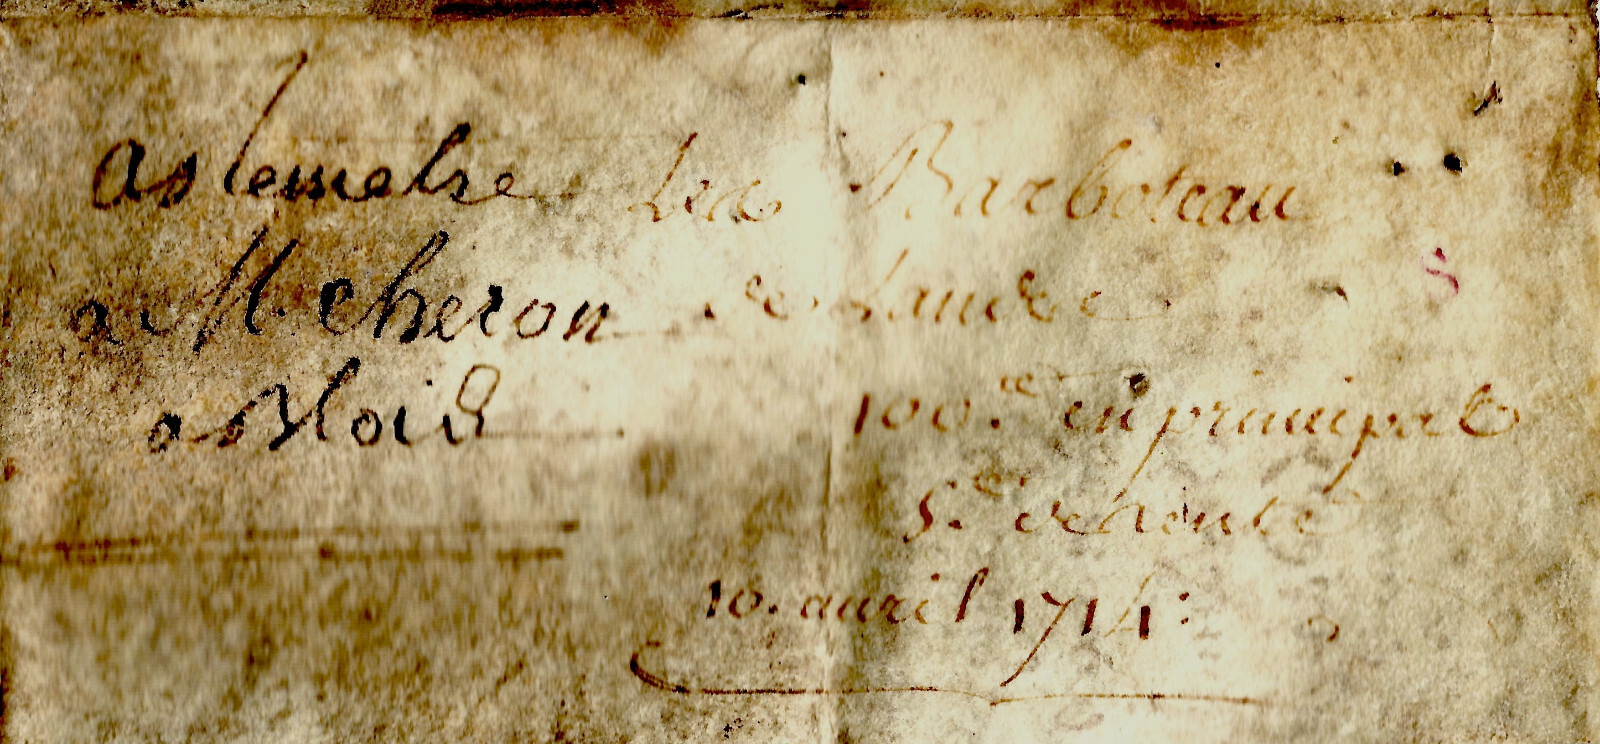 a Remetre
a Mr cheron
a Blois
Les Barboteau
de Lande
100.tt en principal
5.tt de rente
10. auril 1714.